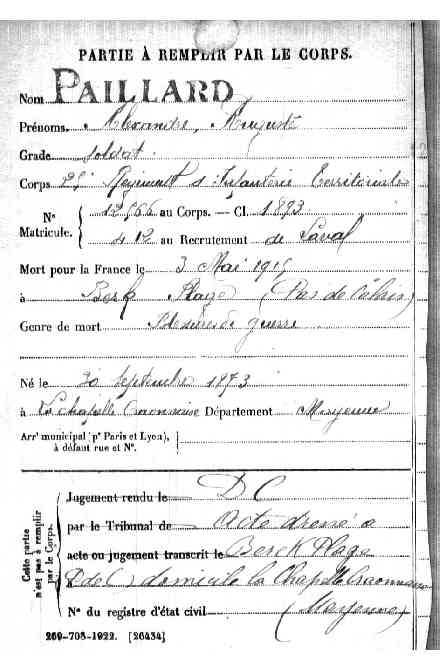 PARTIE À REMPLIR PAR LE CORPS.
Nom PAILLARD
Prénoms. Alexandre, Auguste
Grade soldat
Corps 25e Régiment d'Infanterie Territoriale
N° Matricule. { au Corps. — Cl. 1893
412 au Recrutement de Laval
Mort pour la France le 3 Mai 1915
à Berk Plage (Pas de Calais)
Genre de mort Blessures de guerre
Né le 30 Septembre 1873
à La chapelle Craonnaise Département Mayenne
Arrt municipal (pr Paris et Lyon), à défaut rue et N°.
Cette partie n'est pas à remplir par le Corps.
Jugement rendu le DC
par le Tribunal de Acte dressé à
acte ou jugement transcrit le Berck Plage
(P de C) domicile la Chapelle Craonnaise
N° du registre d'état civil (Mayenne)
269-708-1922. [26434]